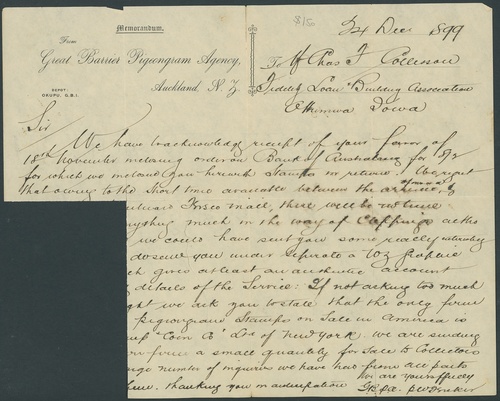 $150
24 Dec 1899
Memorandum.
From
Great Barrier Pigeongram Agency,
Auckland, N. Z.
DEPOT:
OKUPU, G.B.I.
To Mr Chas F Collisson
Fidelity Loan & Building Association
Ottumwa Iowa
Sir
We have to acknowledge receipt of your favor of
18th November enclosing order on Bank of Australasia for
for which we enclose you herewith Stamps in return. We regret
that owing to the short time available between the arrival of
Frisco mail, there will be no time
much in the way of Clippings as tho
we could have sent you some really interesting
do send you under separate a to 3 Graphic
gives at least an authentic account
details of the Service: If not asking too much
we ask you to state that the only firm
Pigeongram Stamps on Sale in America is
Coin Co Ltd of New York. We are sending
firm a small quantity for Sale to Collectors
number of inquiries we have had from all parts
thanking you in anticipation We are yours truly